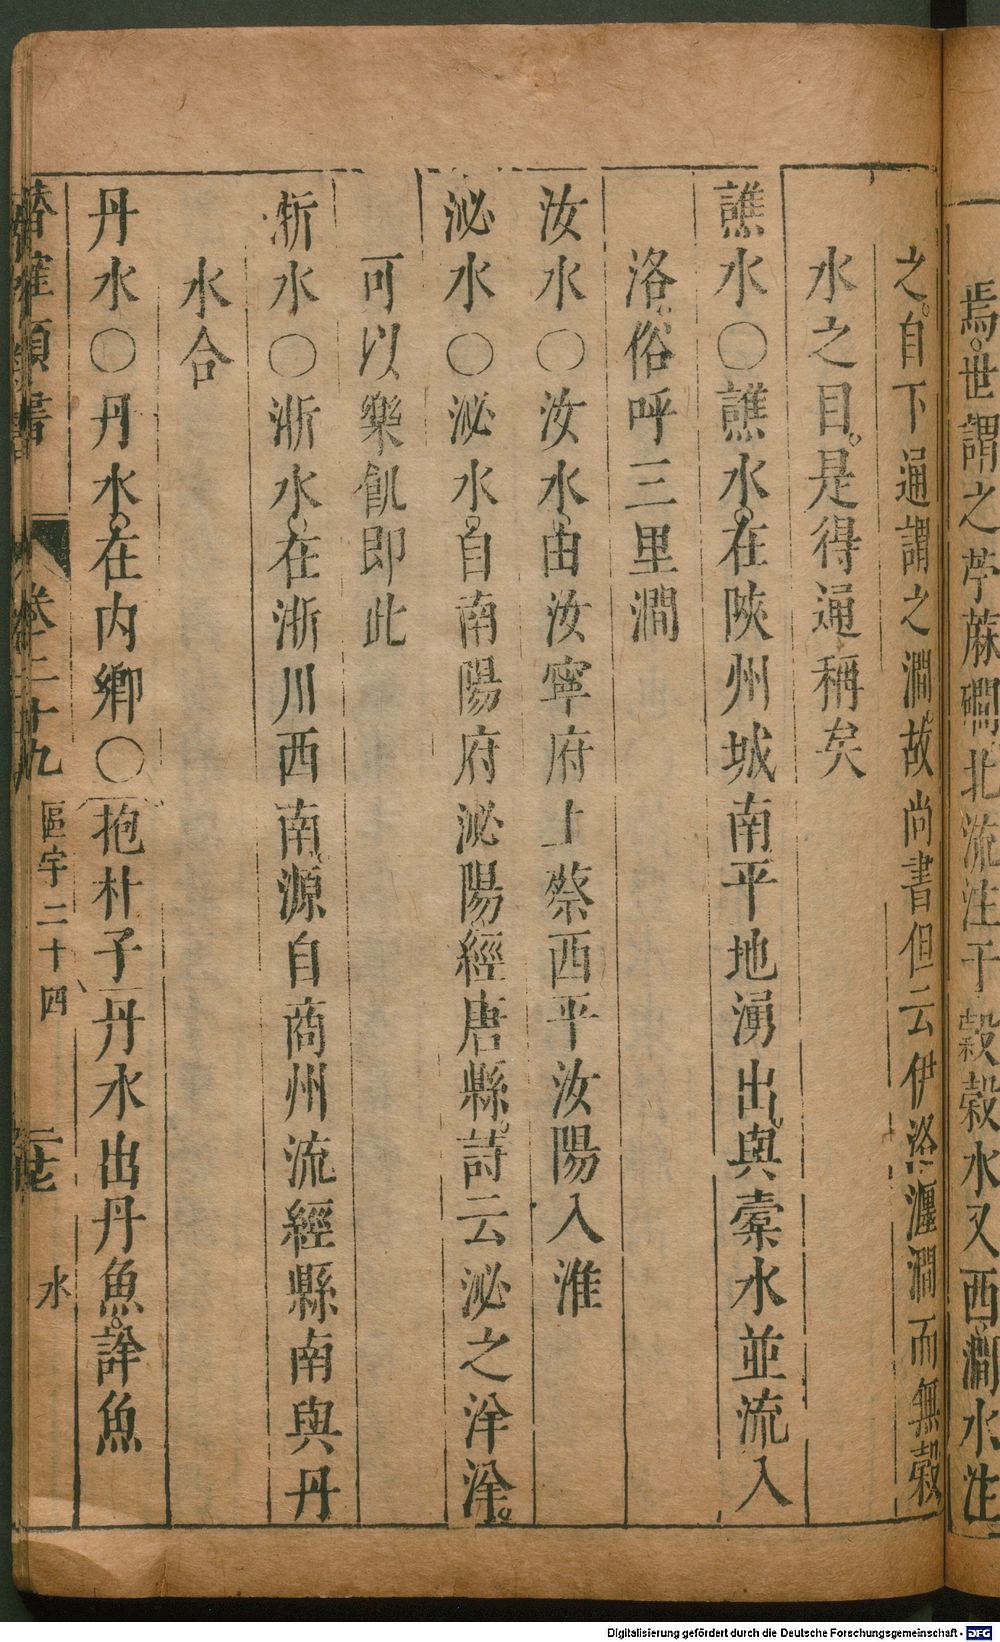 焉世謂之苧蔴磵北流注于穀穀水又西澗水注
之自下通謂之澗故尚書但云伊洛瀍澗而無穀
水之目是得通稱矣
譙水〇譙水在陜州城南平地湧出與橐水並流入
洛俗呼三里澗
汝水〇汝水由汝寧府上蔡西平汝陽入淮
泌水〇泌水自南陽府泌陽經唐縣詩云泌之洋洋
可以樂飢即此
淅水〇淅水在淅川西南源自商州流經縣南與丹
水合
丹水〇丹水在内鄉〇抱朴子丹水出丹魚詳魚
潜確類書 卷二十九 區宇二十四 水
Digitalisierung gefördert durch die Deutsche Forschungsgemeinschaft - DFG